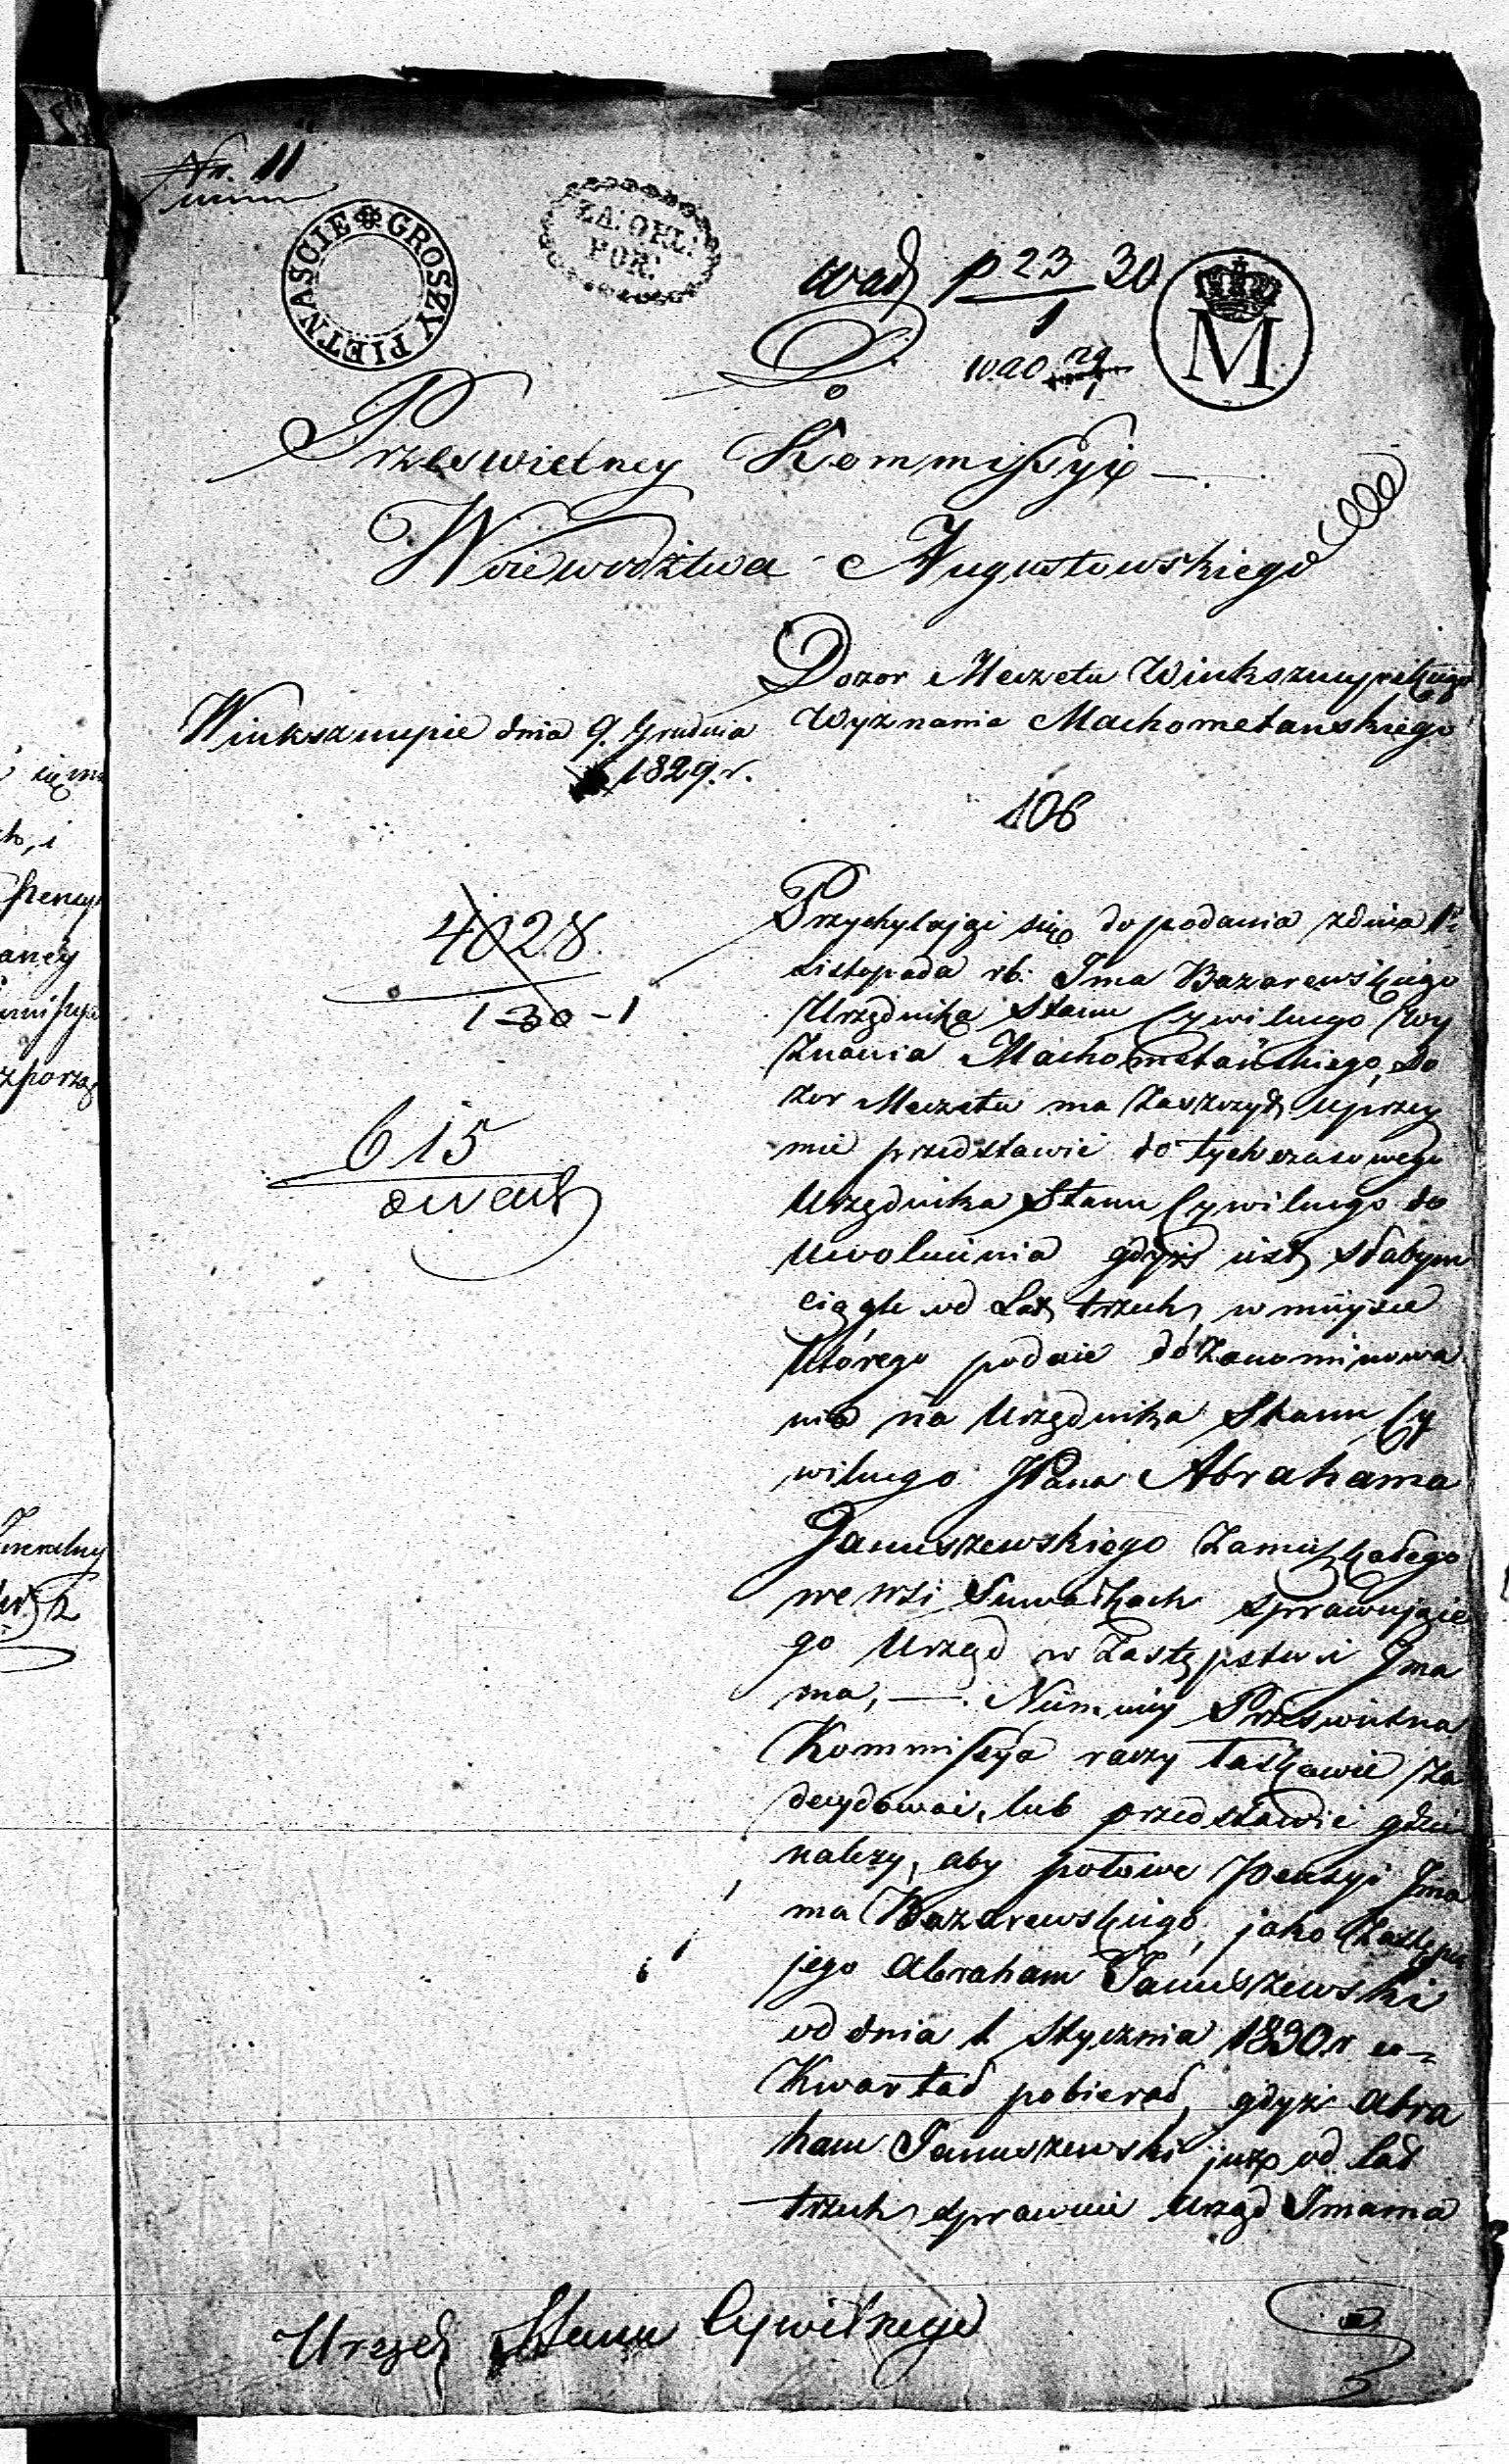 Nr. 11
PIETNAŚCIE GROSZY
ZA: OPŁ: POR:
wad p 23 30
1
M
Do
Prześwietney Kommissyi
Woiewodztwa Augustowskiego
Dozor Meczetu Winksznupskiego
Wyznania Machometanskiego
Winksznupie dnia 9. Grudnia
1829. r.
106
4028.
130-1
615
Przychylając się do podania z dnia 1o
Listopada rb. Ima Bazarewskiego
Urzędnika Stanu Cywilnego Wy
znania Machometańskiego, Do
zor Meczetu ma zaszczyt uprzey
mie przedstawić dotychczasowego
Urzędnika Stanu Cywilnego do
Uwolnienia gdyż iest słabym
ciągle od Lat trzech, w mieysce
którego podaie do zanominowa
nia na Urzędnika Stanu Cy
wilnego JPana Abrahama
Januszewskiego Zamieszkałego
we wsi Suwałkach sprawuiące
go Urząd w Zastępstwie Ima
ma, — Niemniey Prześwietna
Kommissya raczy łaskawie za
decydować, lub przedstawić gdzie
należy, aby połowę Pensyi Ima
ma Bazarewskiego, jako Zastępca
jego Abraham Januszewski
od dnia 1 Stycznia 1830 r co
Kwartał pobierał, gdyż Abra
ham Januszewski już od lat
trzech sprawuie Urząd Imama
Urząd Stanu Cywilnego